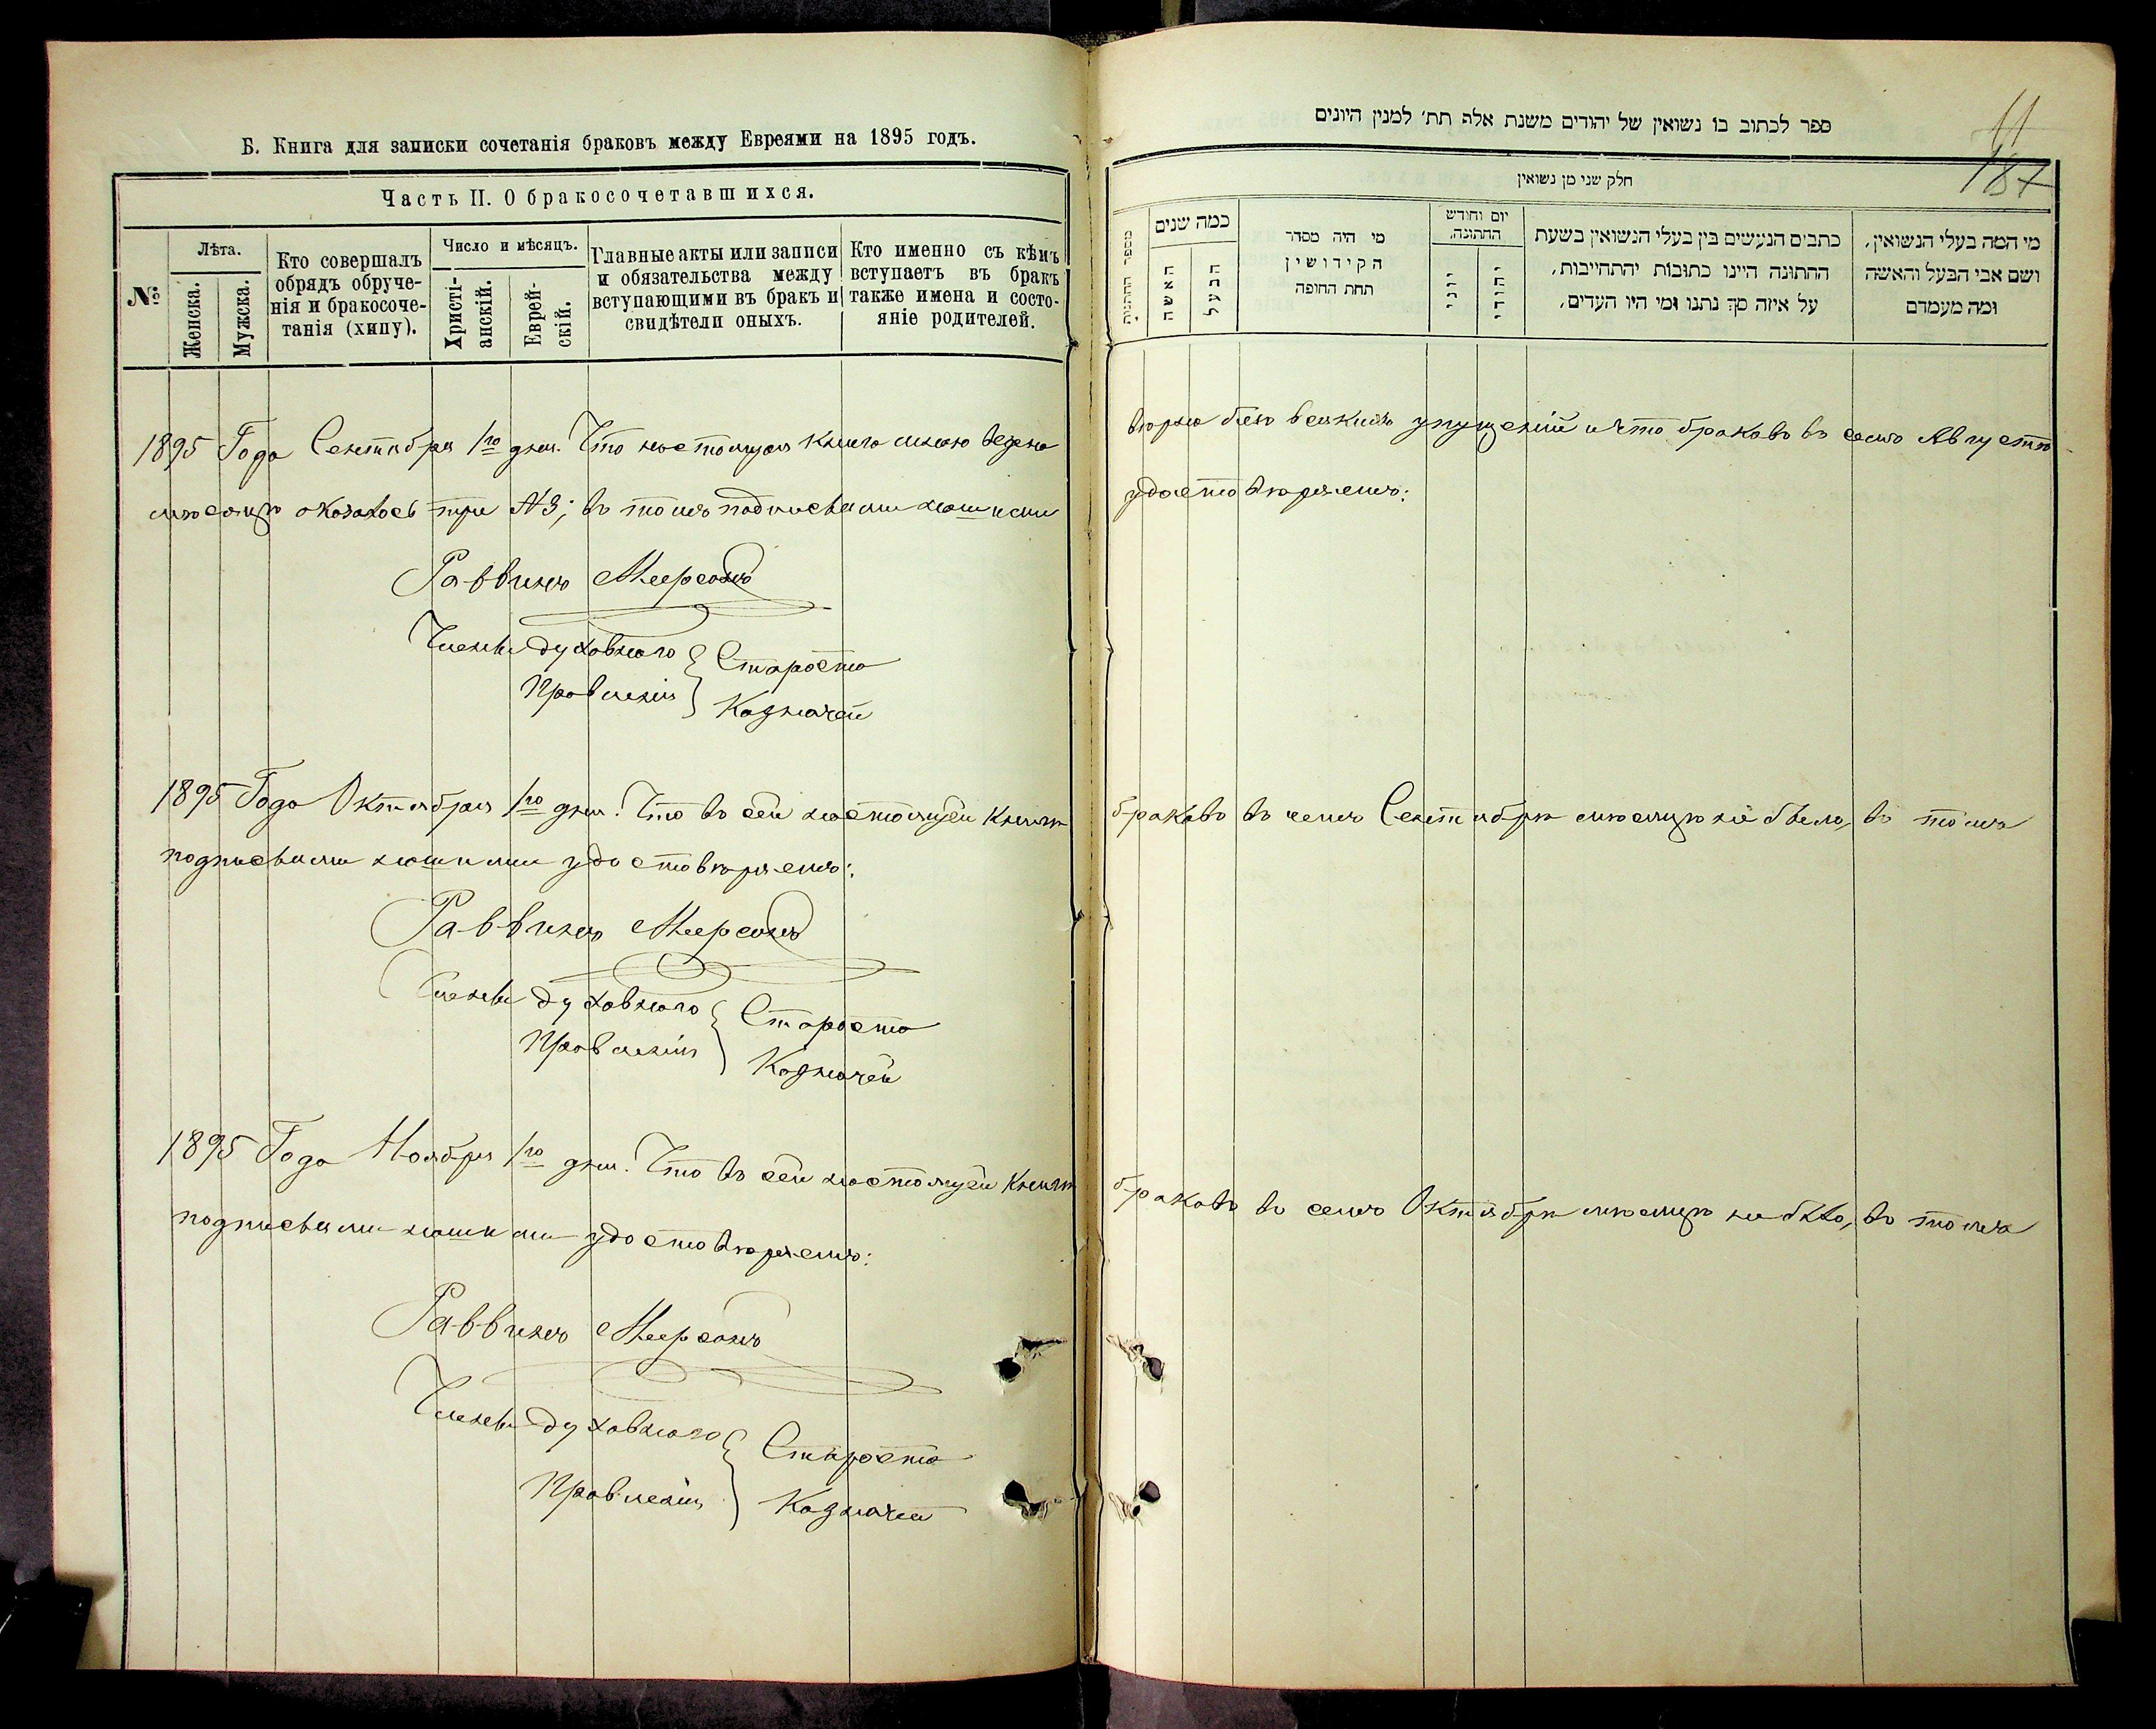 Б. Книга для записки сочетанія браковъ между Евреями на 1895 годъ.
Часть II. О бракосочетавшихся.
№
Лѣта.
Женска.
Мужска.
Кто совершалъ
обрядъ обруче-
нія и бракосоче-
танія (хипу).
Число и мѣсяцъ.
Христі-
анскій.
Еврей-
скій.
Главные акты или записи
и обязательства между
вступающими въ бракъ и
свидѣтели оныхъ.
Кто именно съ кѣмъ
вступаетъ въ бракъ
также имена и состо-
яніе родителей.
1895 Года Сентября 1го дня. Что настоящая книга мною ведена
мѣсяцѣ оказалось три №3; въ томъ подписьями нашими
Раввинъ Меерсонъ
Члены духовнаго
Правленія
Староста
Казначей
1895 Года Октября 1го дня. Что въ сей настоящей книгѣ
подписьями нашими удостовѣряемъ:
Раввинъ Меерсонъ
Члены духовнаго
Правленія
Староста
Казначей
1895 Года Ноября 1го дня. Что въ сей настоящей книгѣ
подписьями нашими удостовѣряемъ:
Раввинъ Меерсонъ
Члены духовнаго
Правленія
Староста
Казначей
ספר לכתוב בו נשואין של יהודים משנת אלף תת׳ למנין היונים
11
187
חלק שני מן נשואין
מספר החתונות
כמה שנים
האשה
הבעל
מי היה מסדר
הקידושין
תחת החופה
יום וחודש
החתונה.
יוני
יהודי
כתבים הנעשים בין בעלי הנשואין בשעת
החתונה היינו כתובות יהתחייבות,
על איזה סך נתנו ומי היו העדים,
מי המה בעלי הנשואין,
ושם אבי הבעל והאשה
ומה מעמדם
вѣрна безъ всякихъ упущеній и что браковъ въ семъ Августѣ
удостовѣряемъ:
браковъ въ семъ Сентябрѣ мѣсяцѣ не было, въ томъ
браковъ въ семъ Октябрѣ мѣсяцѣ не было, въ томъ